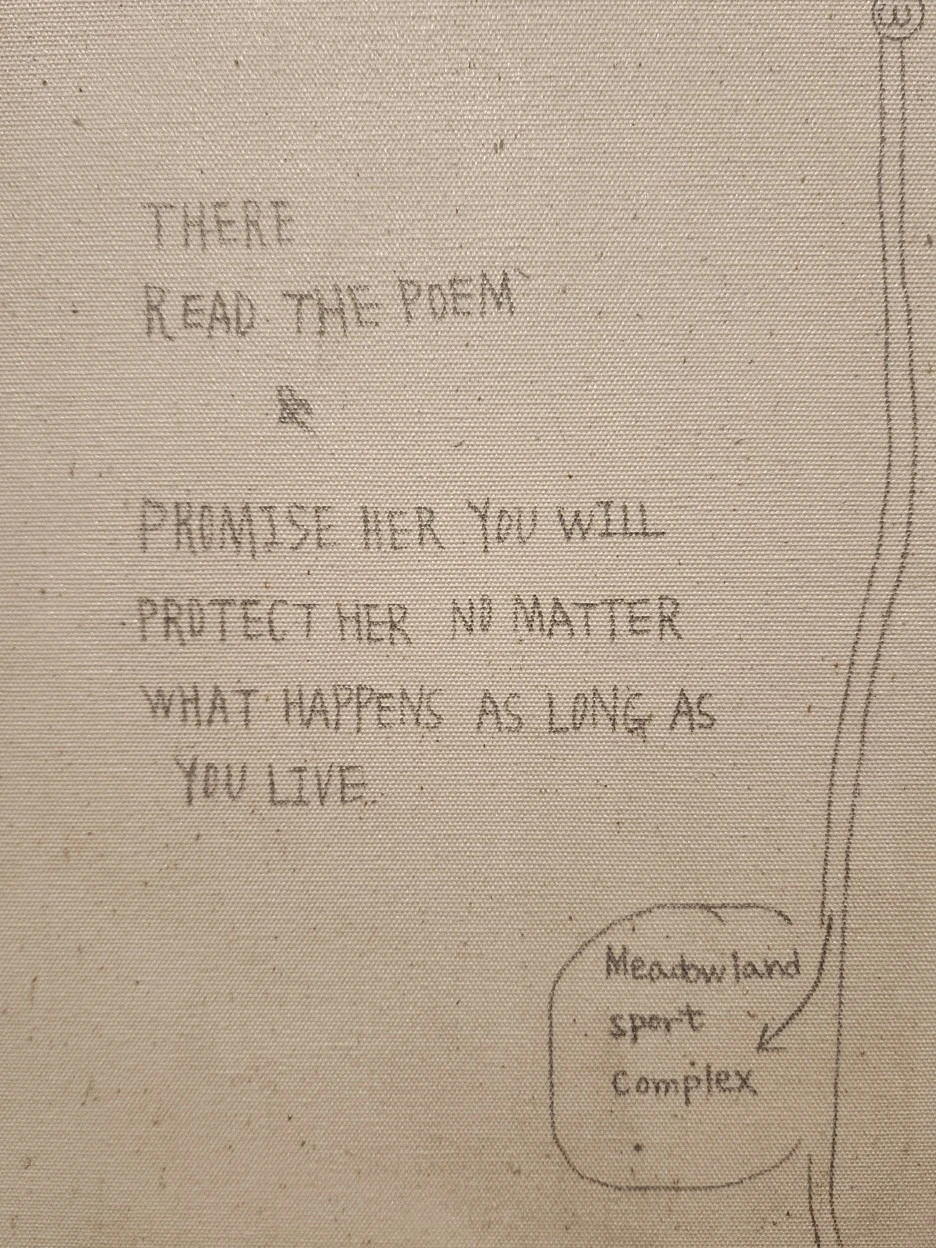 3
THERE
READ THE POEM
&
PROMISE HER YOU WILL
PROTECT HER NO MATTER
WHAT HAPPENS AS LONG AS
YOU LIVE.
Meadowland
sport
complex